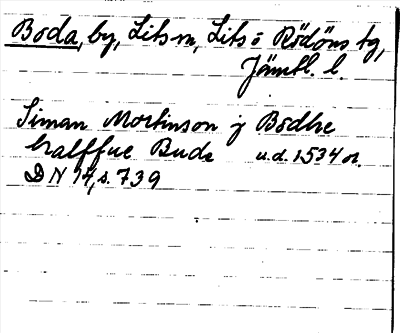 Boda, by, Lits sn, Lits o Rödöns tg,
Jämtl. l.
Siman Mortinson j Bodhe
halffue Buda u.d. 1534 or.
DN 14, s. 739